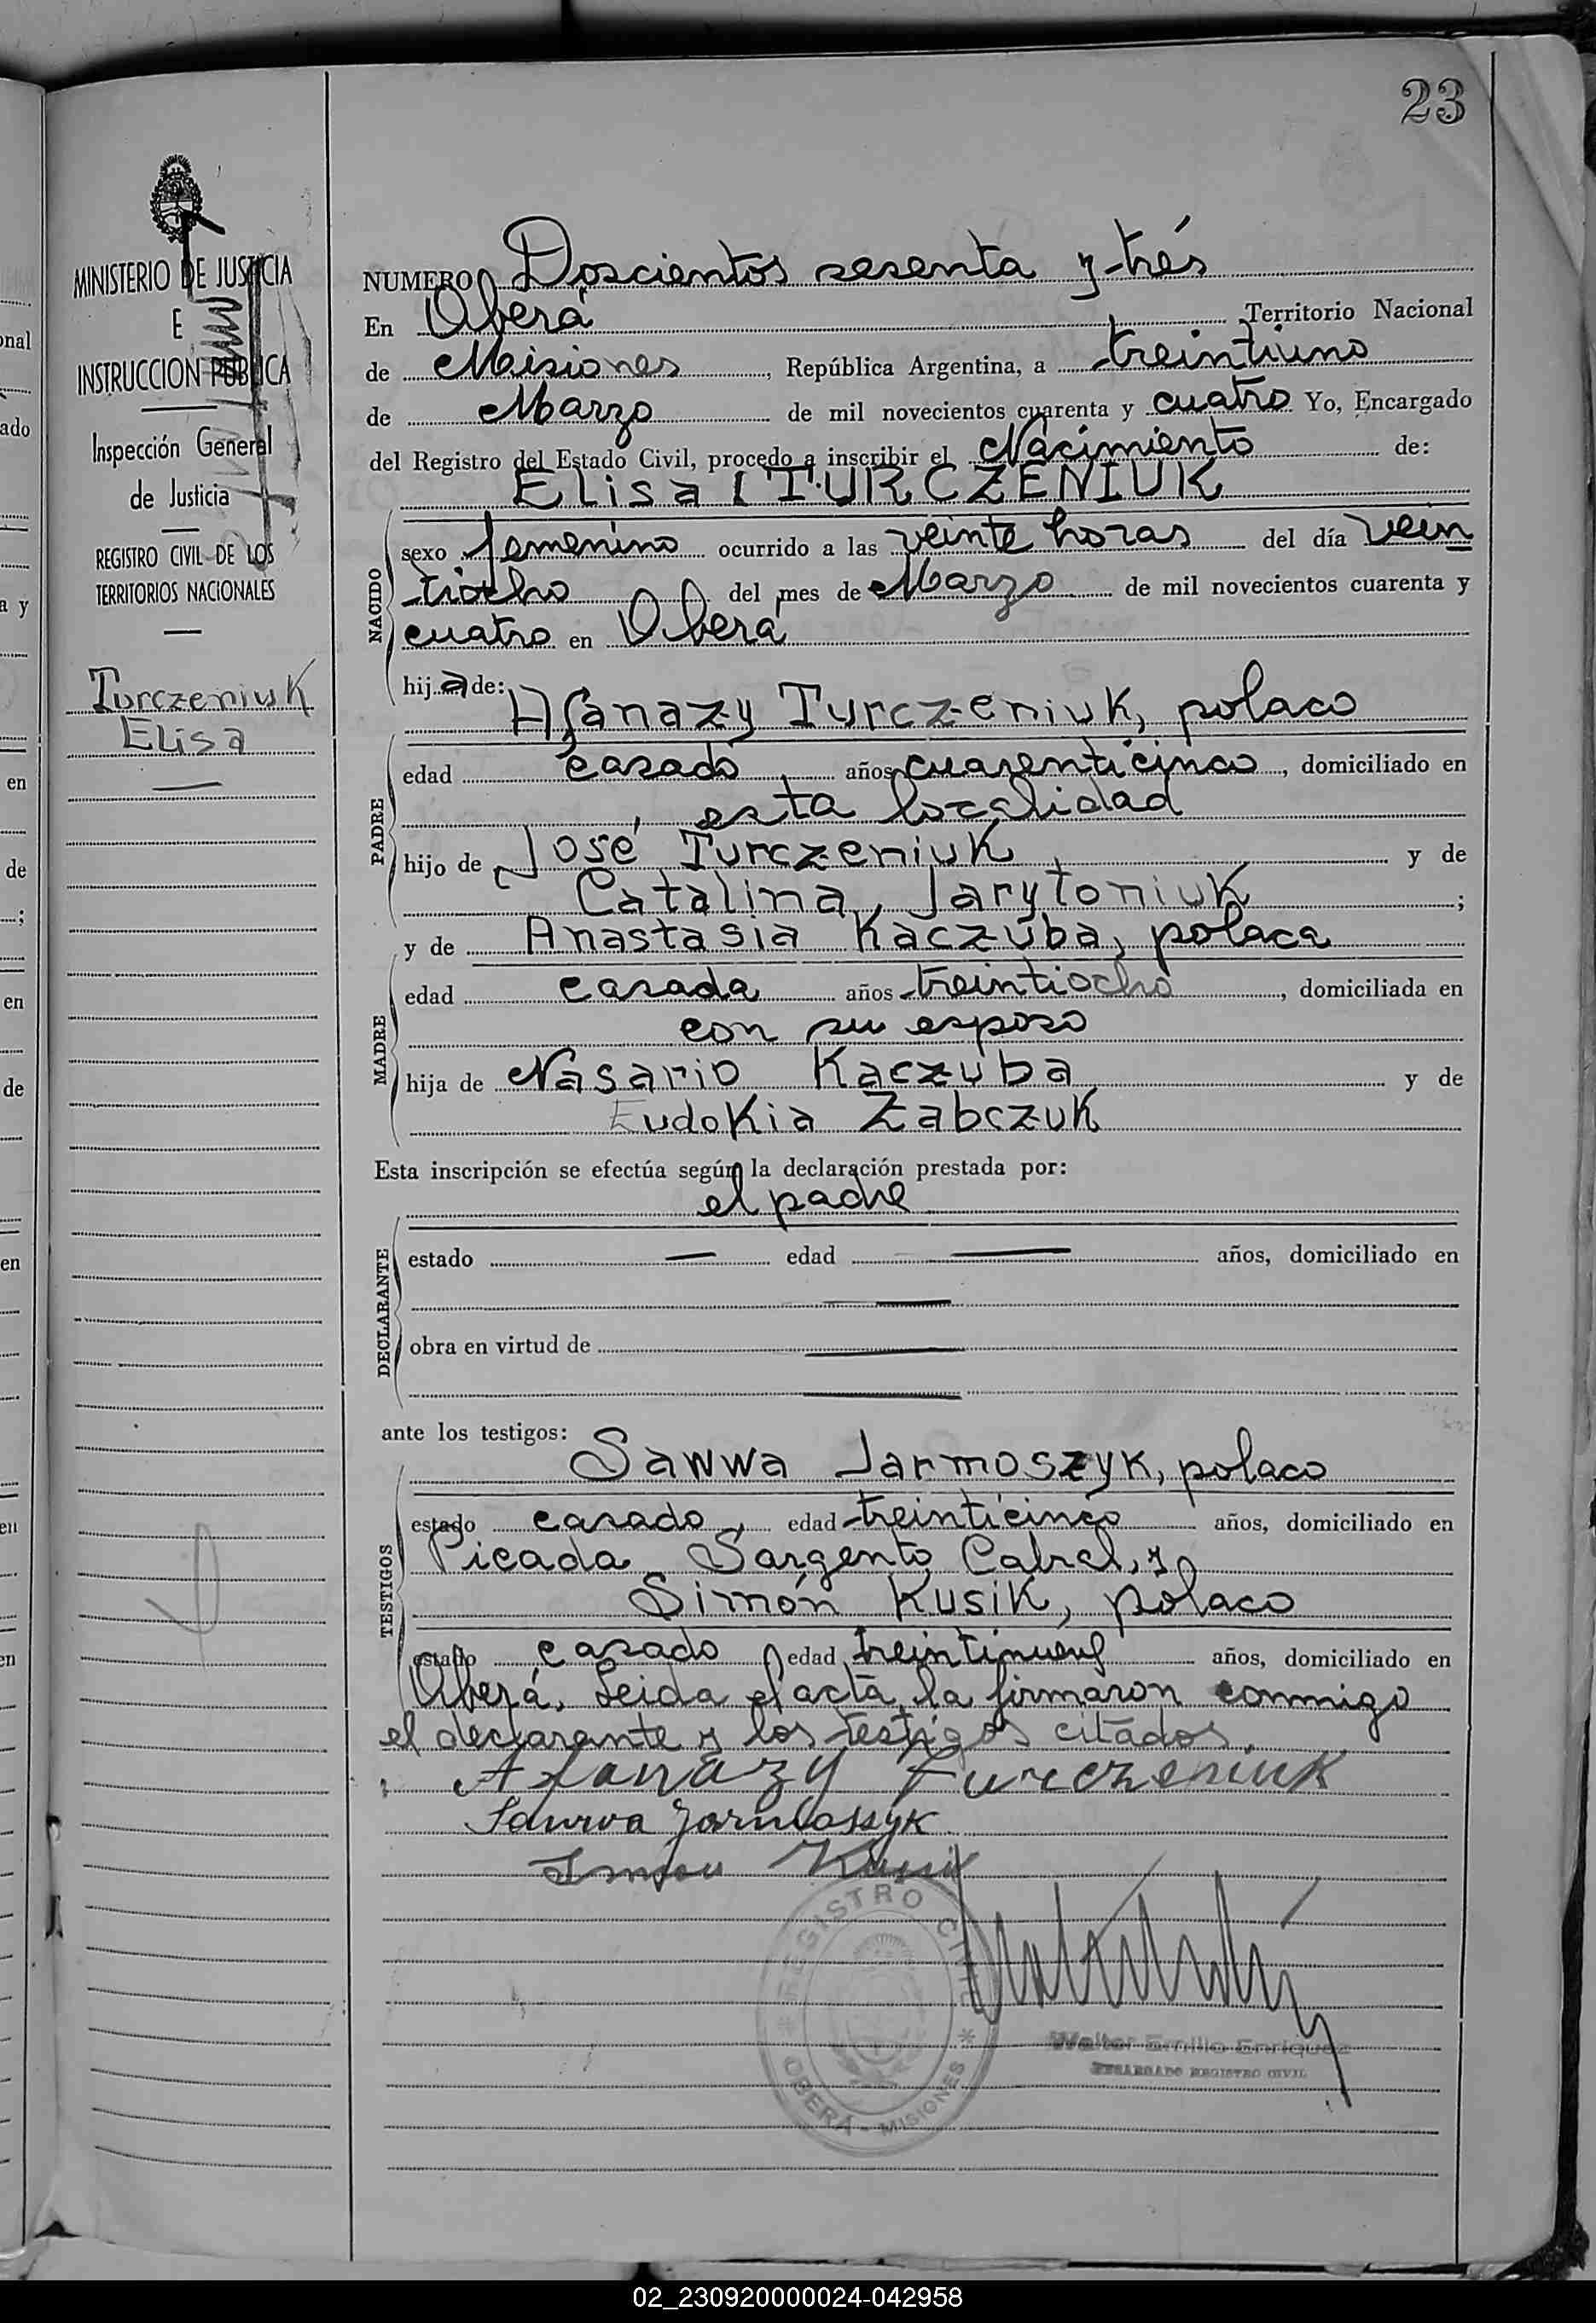 23
MINISTERIO DE JUSTICIA
E
INSTRUCCION PUBLICA
Inspección General
de Justicia
REGISTRO CIVIL DE LOS
TERRITORIOS NACIONALES
Turczeniuk
Elisa
NUMERO Doscientos sesenta y trés
En Oberá Territorio Nacional
de Misiones, República Argentina, a treintiuno
de Marzo de mil novecientos cuarenta y cuatro Yo, Encargado
del Registro del Estado Civil, procedo a inscribir el Nacimiento de:
Elisa TURCZENIUK
NACIDO
sexo femenino ocurrido a las veinte horas del día vein
tiocho del mes de Marzo de mil novecientos cuarenta y
cuatro en Oberá
hija de:
Afanazy Turczeniuk, polaco
PADRE
edad casado, años cuarenticinco, domiciliado en
esta localidad
hijo de José Turczeniuk y de
Catalina Jarytoniuk;
y de Anastasia Kaczuba, polaca
MADRE
edad casada años treintiocho, domiciliada en
con su esposo
hija de Nasario Kaczuba y de
Eudokia Zabczuk
Esta inscripción se efectúa según la declaración prestada por:
el padre
DECLARANTE
estado — edad — años, domiciliado en
—
obra en virtud de —
—
ante los testigos:
Sawwa Jarmoszyk, polaco
TESTIGOS
estado casado, edad treinticinco años, domiciliado en
Picada Sargento Cabral, y
Simón Kusik, polaco
estado casado edad treintinueve años, domiciliado en
Oberá. Leida el acta, la firmaron conmigo
el declarante y los testigos citados.
Afanazy Turczeniuk
Sawwa Jarmoszyk
REGISTRO CIVIL
OBERÁ - MISIONES
Walter Emilio Enriquez
ENCARGADO REGISTRO CIVIL
02_230920000024-042958